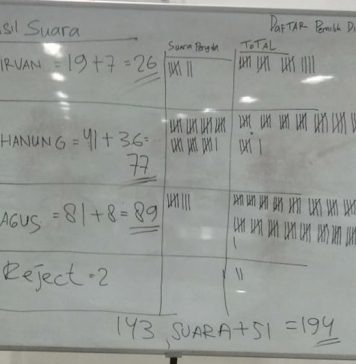 sil Suara
DAFTAR Pemilih
Suara Pengda TOTAL
IRUAN = 19 + 7 = 26
HANUNG = 41 + 36 =
77
AGUS = 81 + 8 = 89
Reject = 2
143 SUARA + 51 = 194